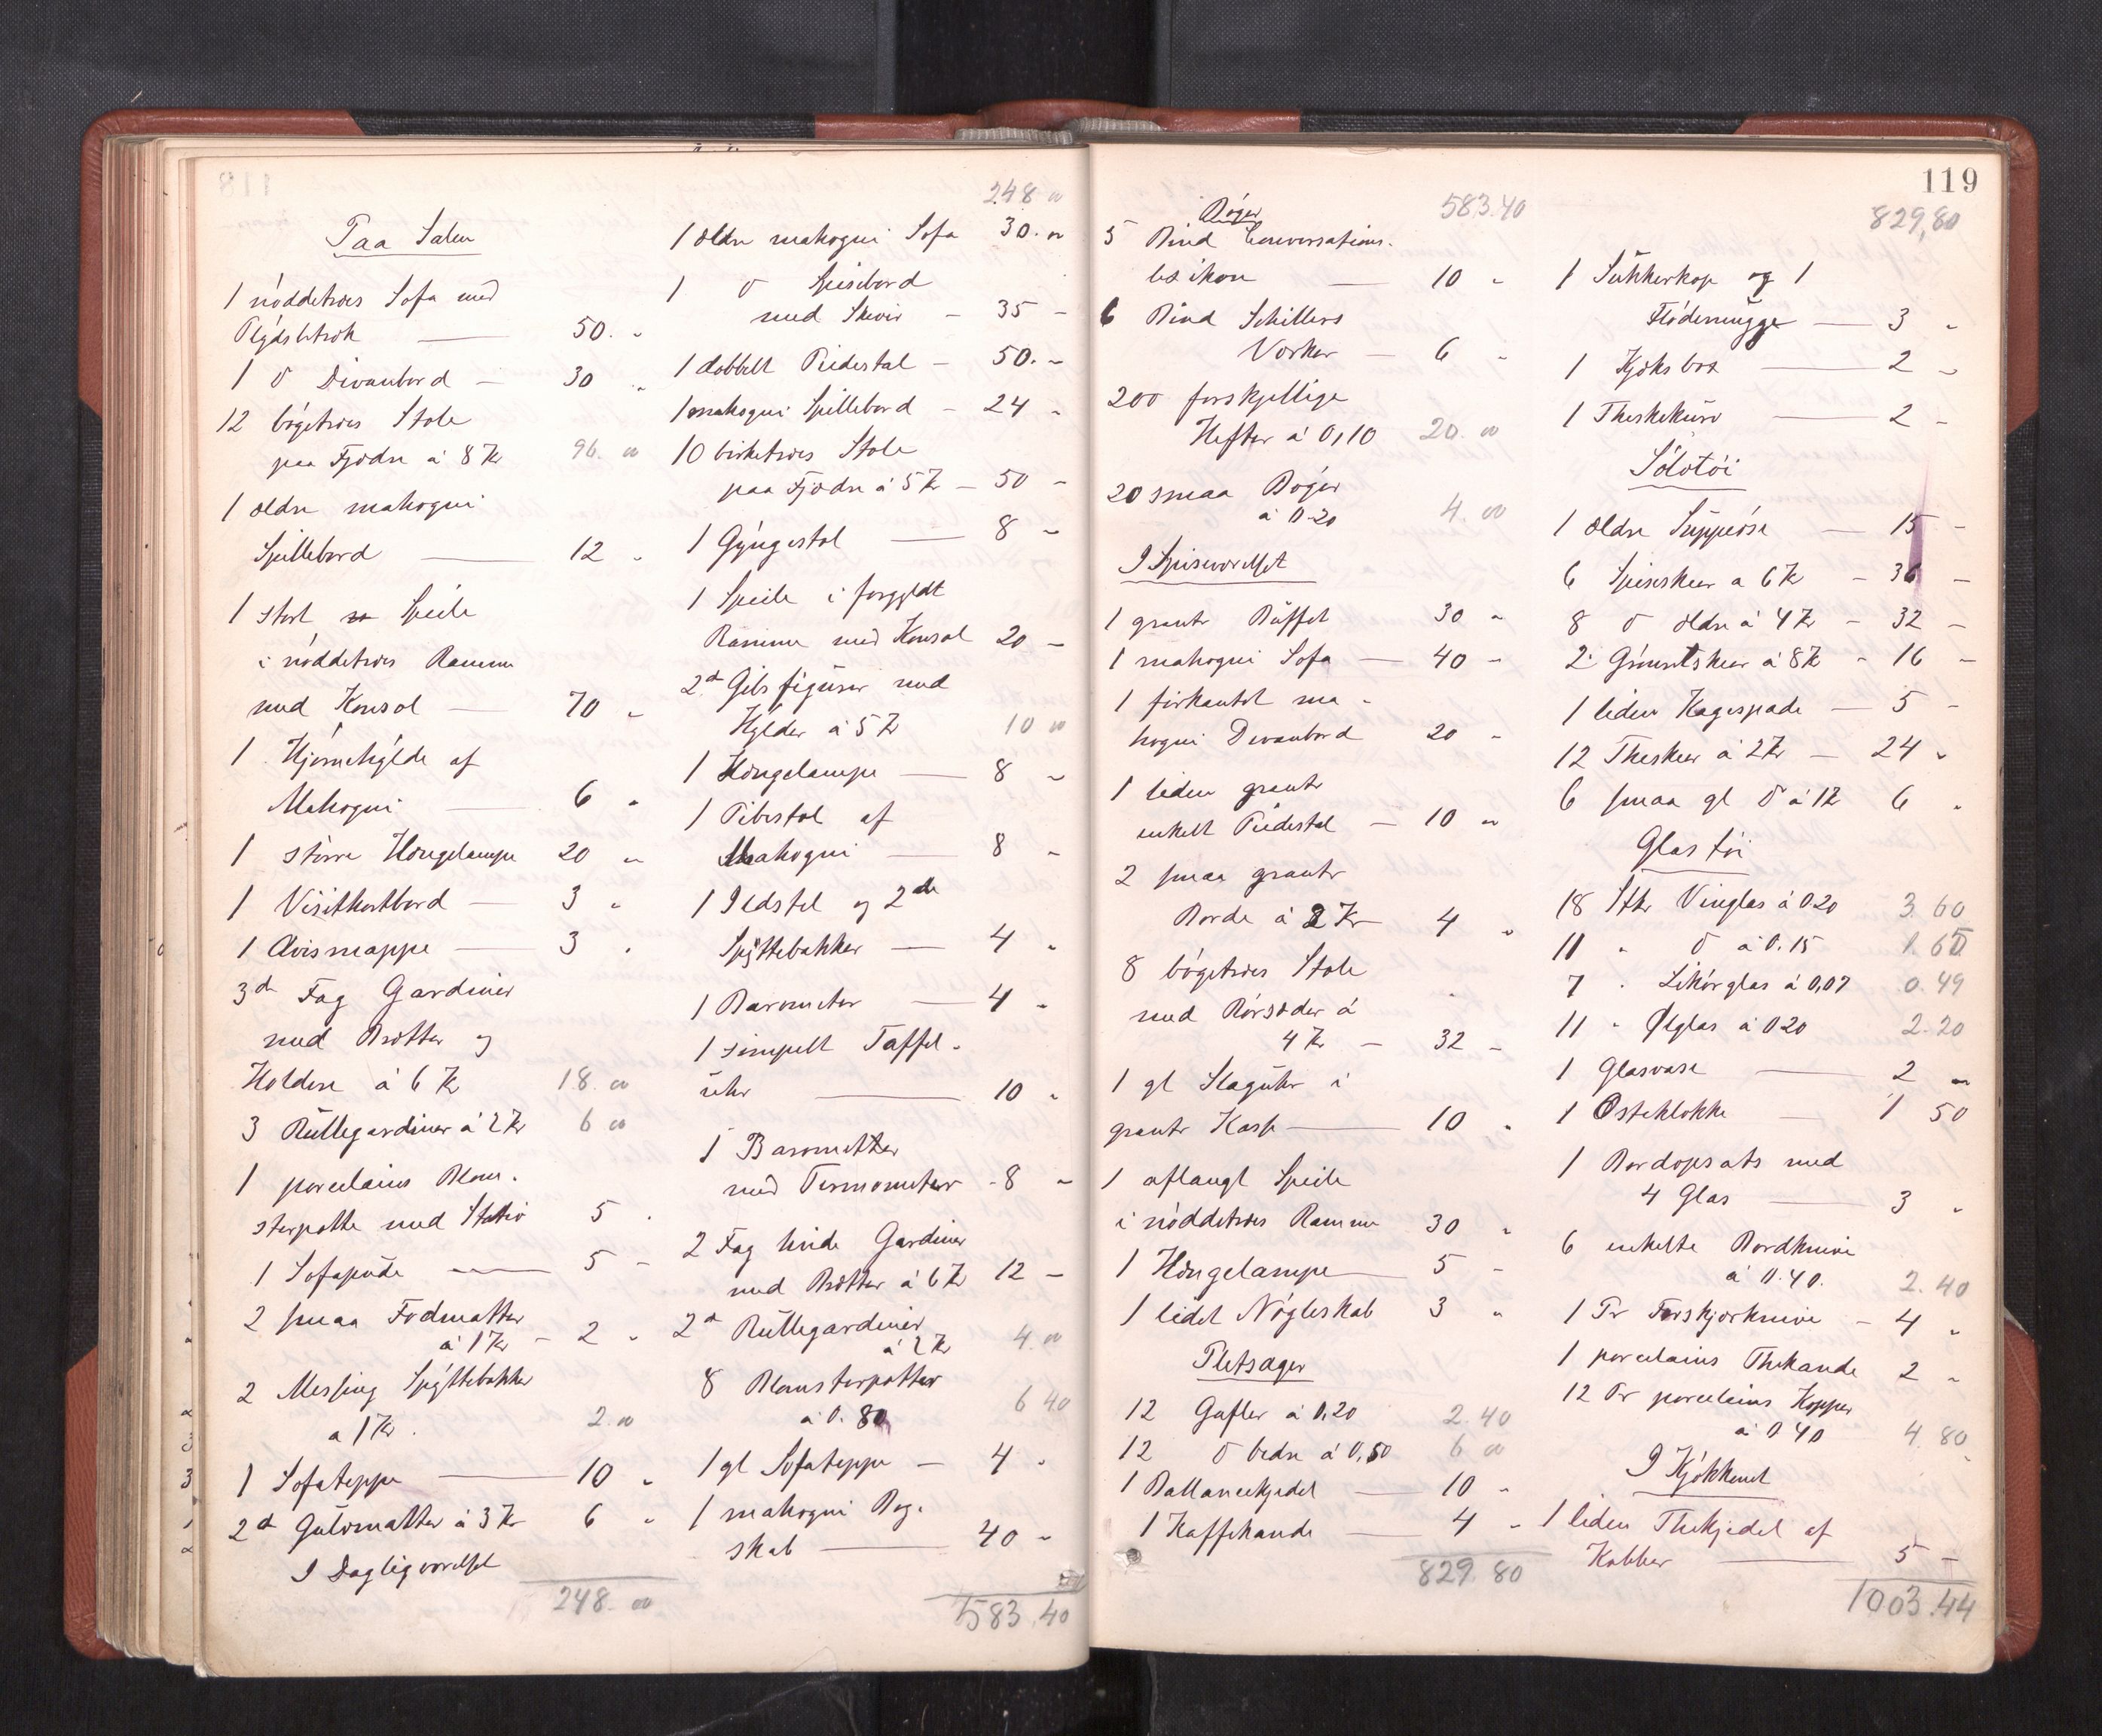 118
Paa Salen
1 nöddetræs Sofa med
Plydsbetræk 50. -
1 d Divanbord - 30 -
12 bøgetræs Stole
paa Fjædre á 8 Kr 96. 00
1 ældre mahogni
Spillebord 12 -
1 stort Speile
i nøddetræs Ramme
med Konsol 70 -
1 Hjørnehylde af
Mahogni 6 -
1 større Hængelampe 20 -
1 Visitkortbord - 3 -
1 Avismappe - 3 -
3d Fag Gardiner
med Brætter og
Holdere á 6 Kr 18. 00
3 Rullegardiner á 2 Kr 6 00
1 porcelains Blom-
sterpotte med Stativ 5 -
1 Sofapude 5 -
2 smaa Fodmatter
á 1 Kr - 2 -
2 Messing Spyttebakker
a 1 Kr. 2. 00
1 Sofateppe 10 -
2d Gulvmatter á 3 Kr 6 -
I Dagligværelset
248. 00
248 00
1 ældre mahogni Sofa 30. 00
1 d Spisebord
med Skiver - 35 -
1 dobbelt Piedestal - 50. -
1 mahogni Spillebord - 24 -
10 birketræs Stole
paa Fjædre á 5 Kr - 50 -
1 Gyngestol 8 -
1 Speile i forgyldt
Ramme med Konsol 20 -
2d Gibsfigurer med
Hylder á 5 Kr 10 00
1 Hængelampe 8 -
1 Pibestol af
Mahogni 8 -
1 Ildstel og 2de
Spyttebakker 4 -
1 Barometer 4 -
1 simpelt Taffel-
uhr 10 -
1 Barometter
med Termometer - 8 -
2 Fag hvide Gardiner
med Brætter á 6 Kr 12 -
2d Rullegardiner
á 2 Kr 4. 00
8 Blomsterpotter
á 0. 80 6 40
1 gl Sofateppe - 4 -
1 mahogni Bog-
skab 40 -
583.40
119
Bøger
583.40
5 Bind Conversations-
lexikon 10 -
6 Bind Schillers
Værker - 6 -
200 forskjellige
Hefter á 0,10 20. 00
20 smaa Bøger
á 0-20 4. 00
I Spiseværelset
1 grantr Buffet 30 -
1 mahogni Sofa 40 -
1 firkantet ma-
hogni Divanbord 20 -
1 liden grantr
enkelt Piedestal - 10 -
2 smaa grantr
Borde á 2 Kr 4 -
8 bøgetræs Stole
med Rørsæder á
4 Kr - 32 -
1 gl Slaguhr i
grantr Kasse 10 -
1 aflangt Speile
i nøddetræs Ramme 30 -
1 Hængelampe 5 -
1 lidet Nøgleskab 3 -
Pletsager
12 Gafler á 0,20 2.40
12 d bedre á 0,50 6 00
1 Ballancekjedel 10 -
1 Kaffekande 4 -
829. 80
829,80
1 Sukkerkop og 1
Flødemugge 3 -
1 Kjæksbox 2 -
1 Theskekurv 2 -
Sölvtöi
1 ældre Suppeøse 15 -
6 Spiseskeer a 6 Kr - 36 -
8 d ældre á 4 Kr - 32 -
2 Grøntskeer á 8 Kr - 16 -
1 liden Kagespade - 5 -
12 Theskeer á 2 Kr - 24 -
6 smaa gl d á 1 Kr 6 -
Glastöi
18 Stkr Vinglas á 0.20 3. 60
11 - d á 0.15 1. 65
7 - Likørglas á 0,07 0. 49
11 - Ølglas á 020 2. 20
1 Glasvase 2 -
1 Osteklokke 1 50
1 Bordopsats med
4 Glas 3 -
6 enkelte Bordknive
á 0.40. 2. 40
1 Pr Forskjærknive - 4 -
1 porcelains Thekande 2 -
12 Pr porcelains Kopper
á 0 40 4. 80
I Kjøkkenet
1 liden Thekjedel af
Kobber 5 -
1003.44